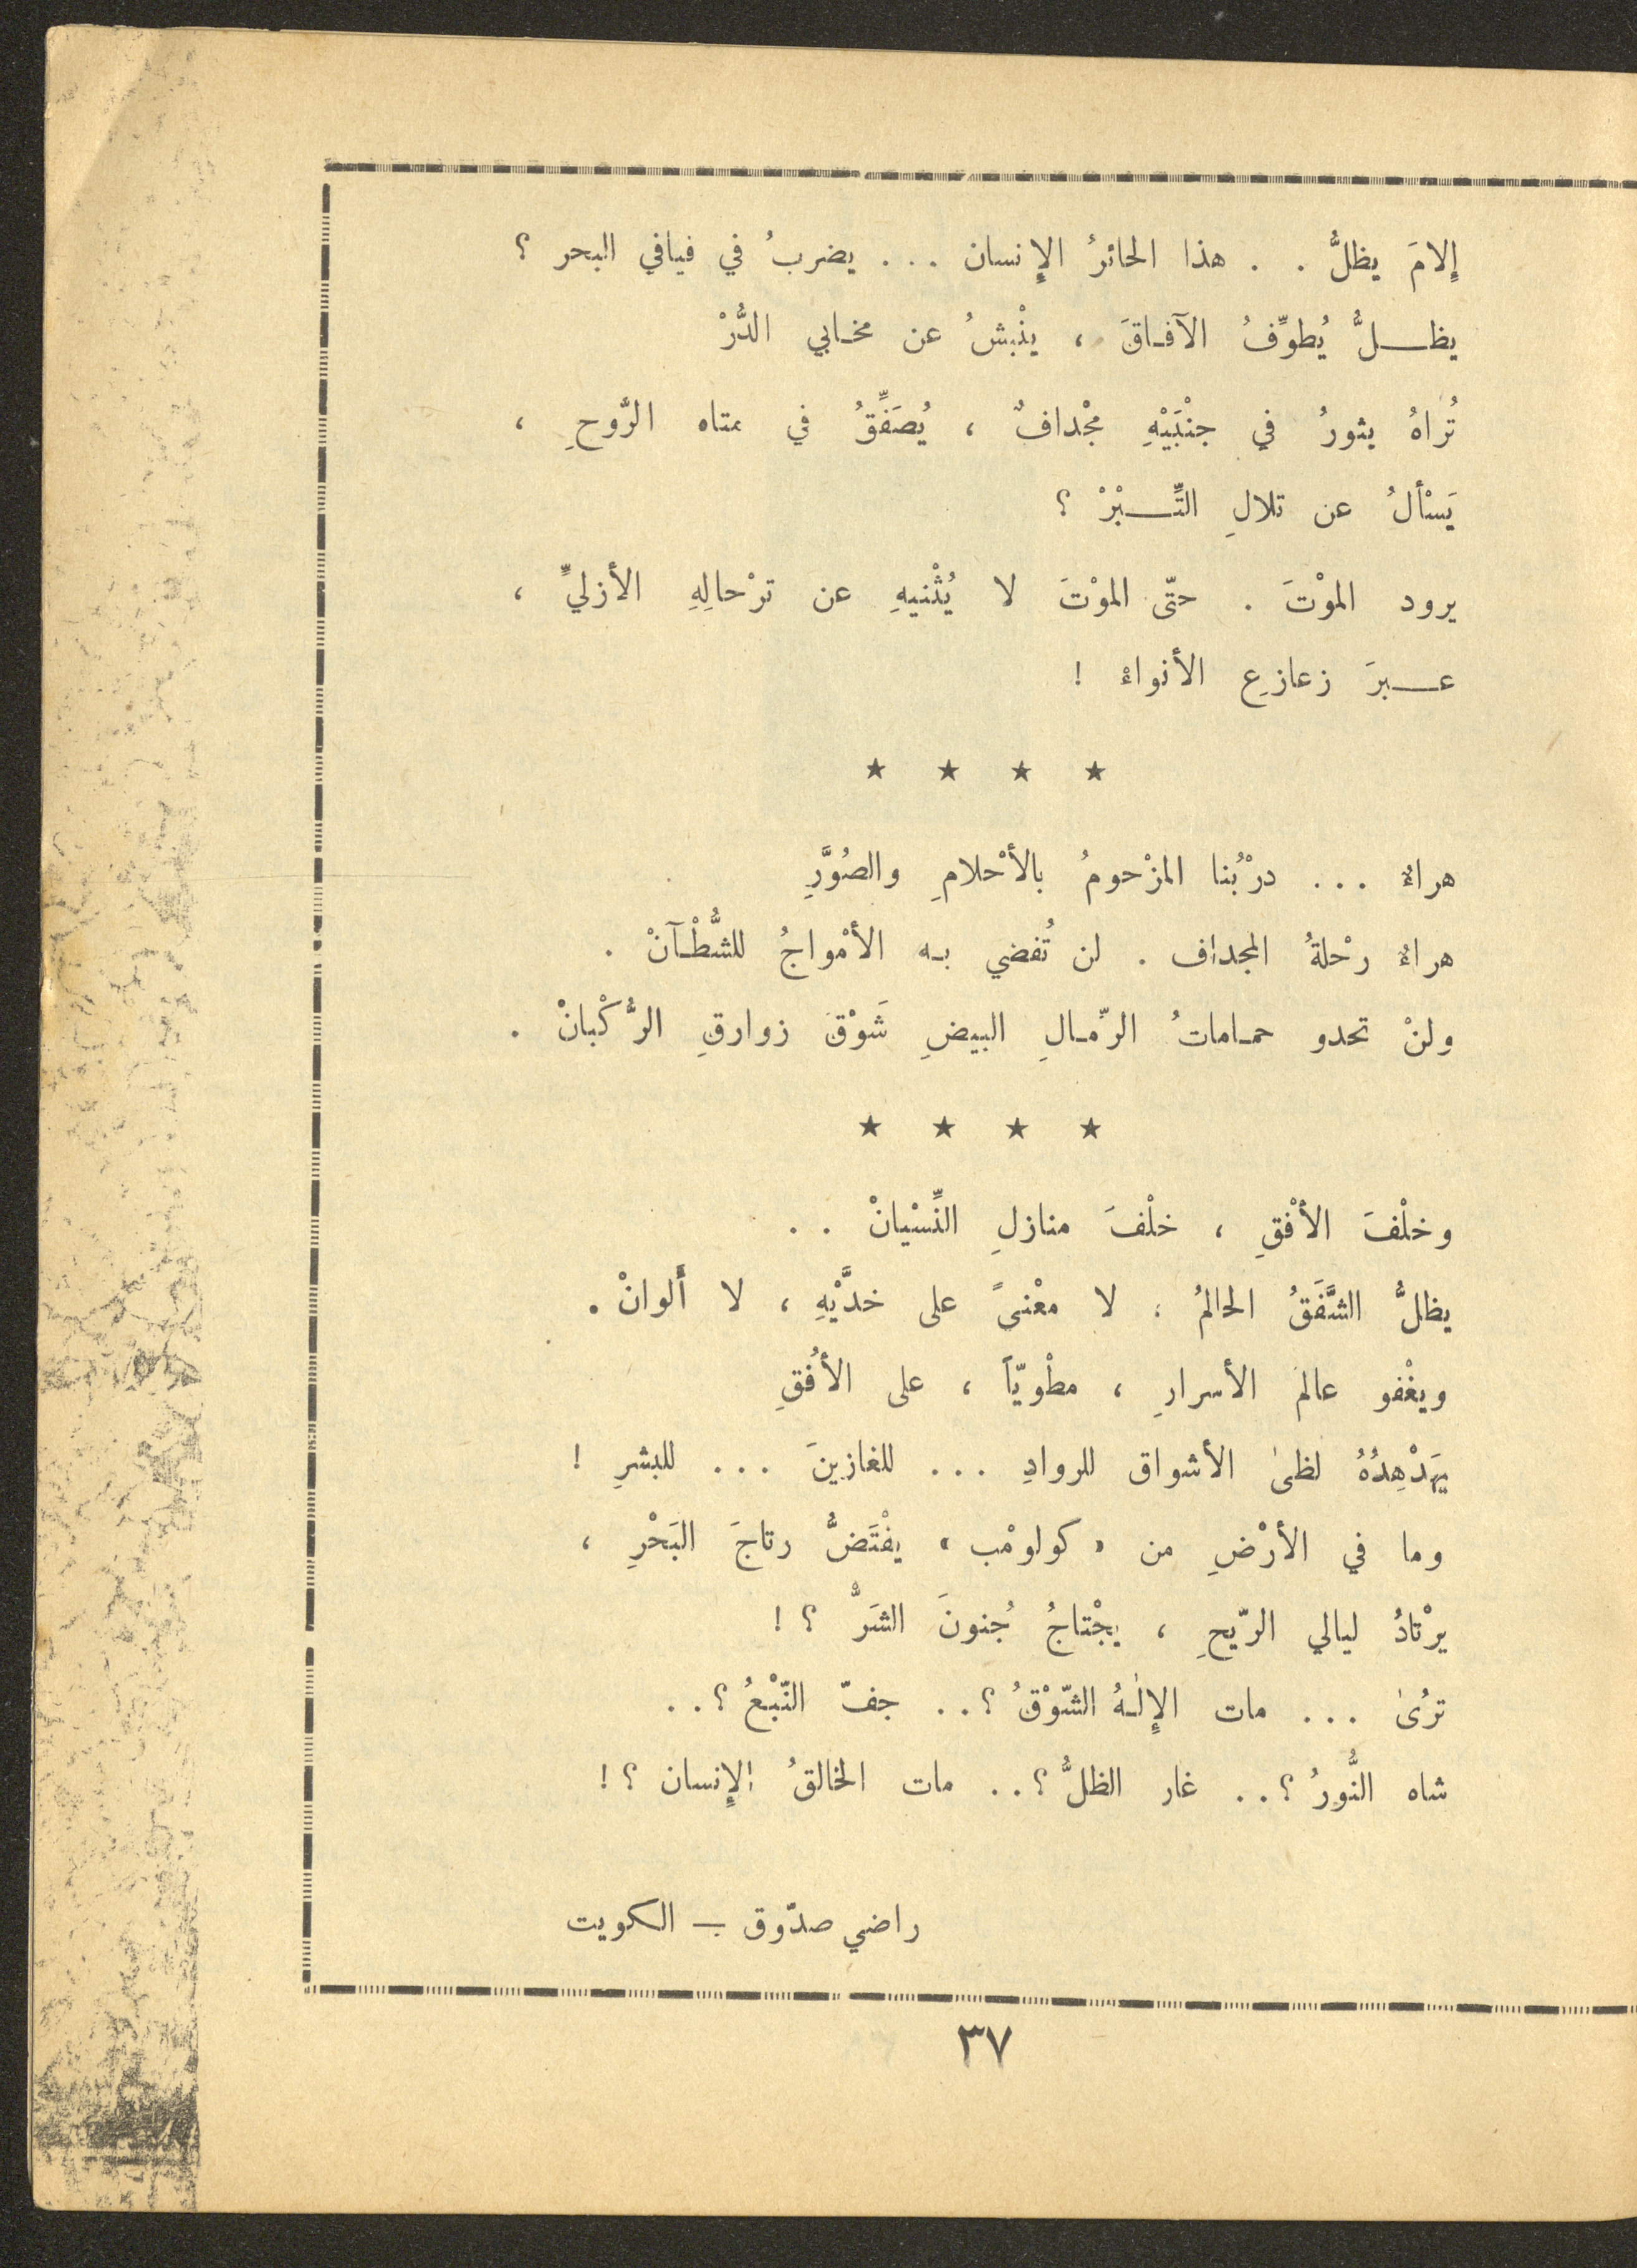 إِلامَ يظلُّ . . هذا الحائرُ الإِنسان . . . يضربُ في فيافي البحر ؟
يظــلُّ يُطوِّفُ الآفـاقَ ، ينْبشُ عن مخـابي الدُّرْ
تُراهُ يثورُ في جنْبَيْهِ مجْدافٌ ، يُصَفِّقُ في متاه الرَّوحِ ،
يَسْألُ عن تلالِ التِّــبْرْ ؟
يرود الموْتَ . حتّى الموْتَ لا يُثْنيهِ عن ترْحالِهِ الأزليِّ ،
عــبرَ زعازعِ الأنواءْ !
★ ★ ★ ★
هراءٌ . . . درْبُنا المزْحومُ بالأحْلامِ والصُوَّرِ
هراءٌ رحْلةُ المجداف . لن تُفضي بـه الأمْواجُ للشُّطْـآنْ .
ولنْ تحدو حمـاماتُ الرّمـالِ البيضِ شَوْقَ زوارقِ الرُّكْبانْ .
★ ★ ★ ★
وخلْفَ الأفْقِ ، خلْفَ منازلِ النِّسْيانْ . .
يظلُّ الشَّفَقُ الحالمُ ، لا معْنىً على خدَّيْهِ ، لا أَلوانْ .
ويغْفو عالم الأسرارِ ، مطْويّاً ، على الأفُقِ
يَهَدْهِدُهُ لظىٰ الأشواق للروادِ . . . للغازينَ . . . للبشرِ !
وما في الأرْضِ من « كولومْب » يفْتَضُّ رتاجَ البَحْرِ ،
يرْتادُ ليالي الرّيحِ ، يجْتاحُ جُنونَ الشَرّْ ؟ !
ترُىٰ . . . مات الإِلـٰهُ الشّوْقُ ؟ . . جفّ النّبْعُ ؟ . .
شاه النُّورُ ؟ . . غار الظلُّ ؟ . . مات الخالقُ الإِنسان ؟ !
راضي صدّوق — الكويت
٣٧